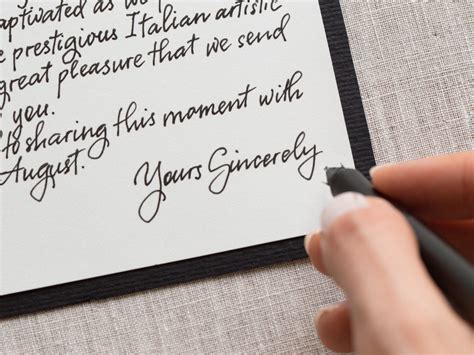 captivated as we
prestigious Italian artistic
great pleasure that we send
you.
to sharing this moment with
August.
Yours Sincerely